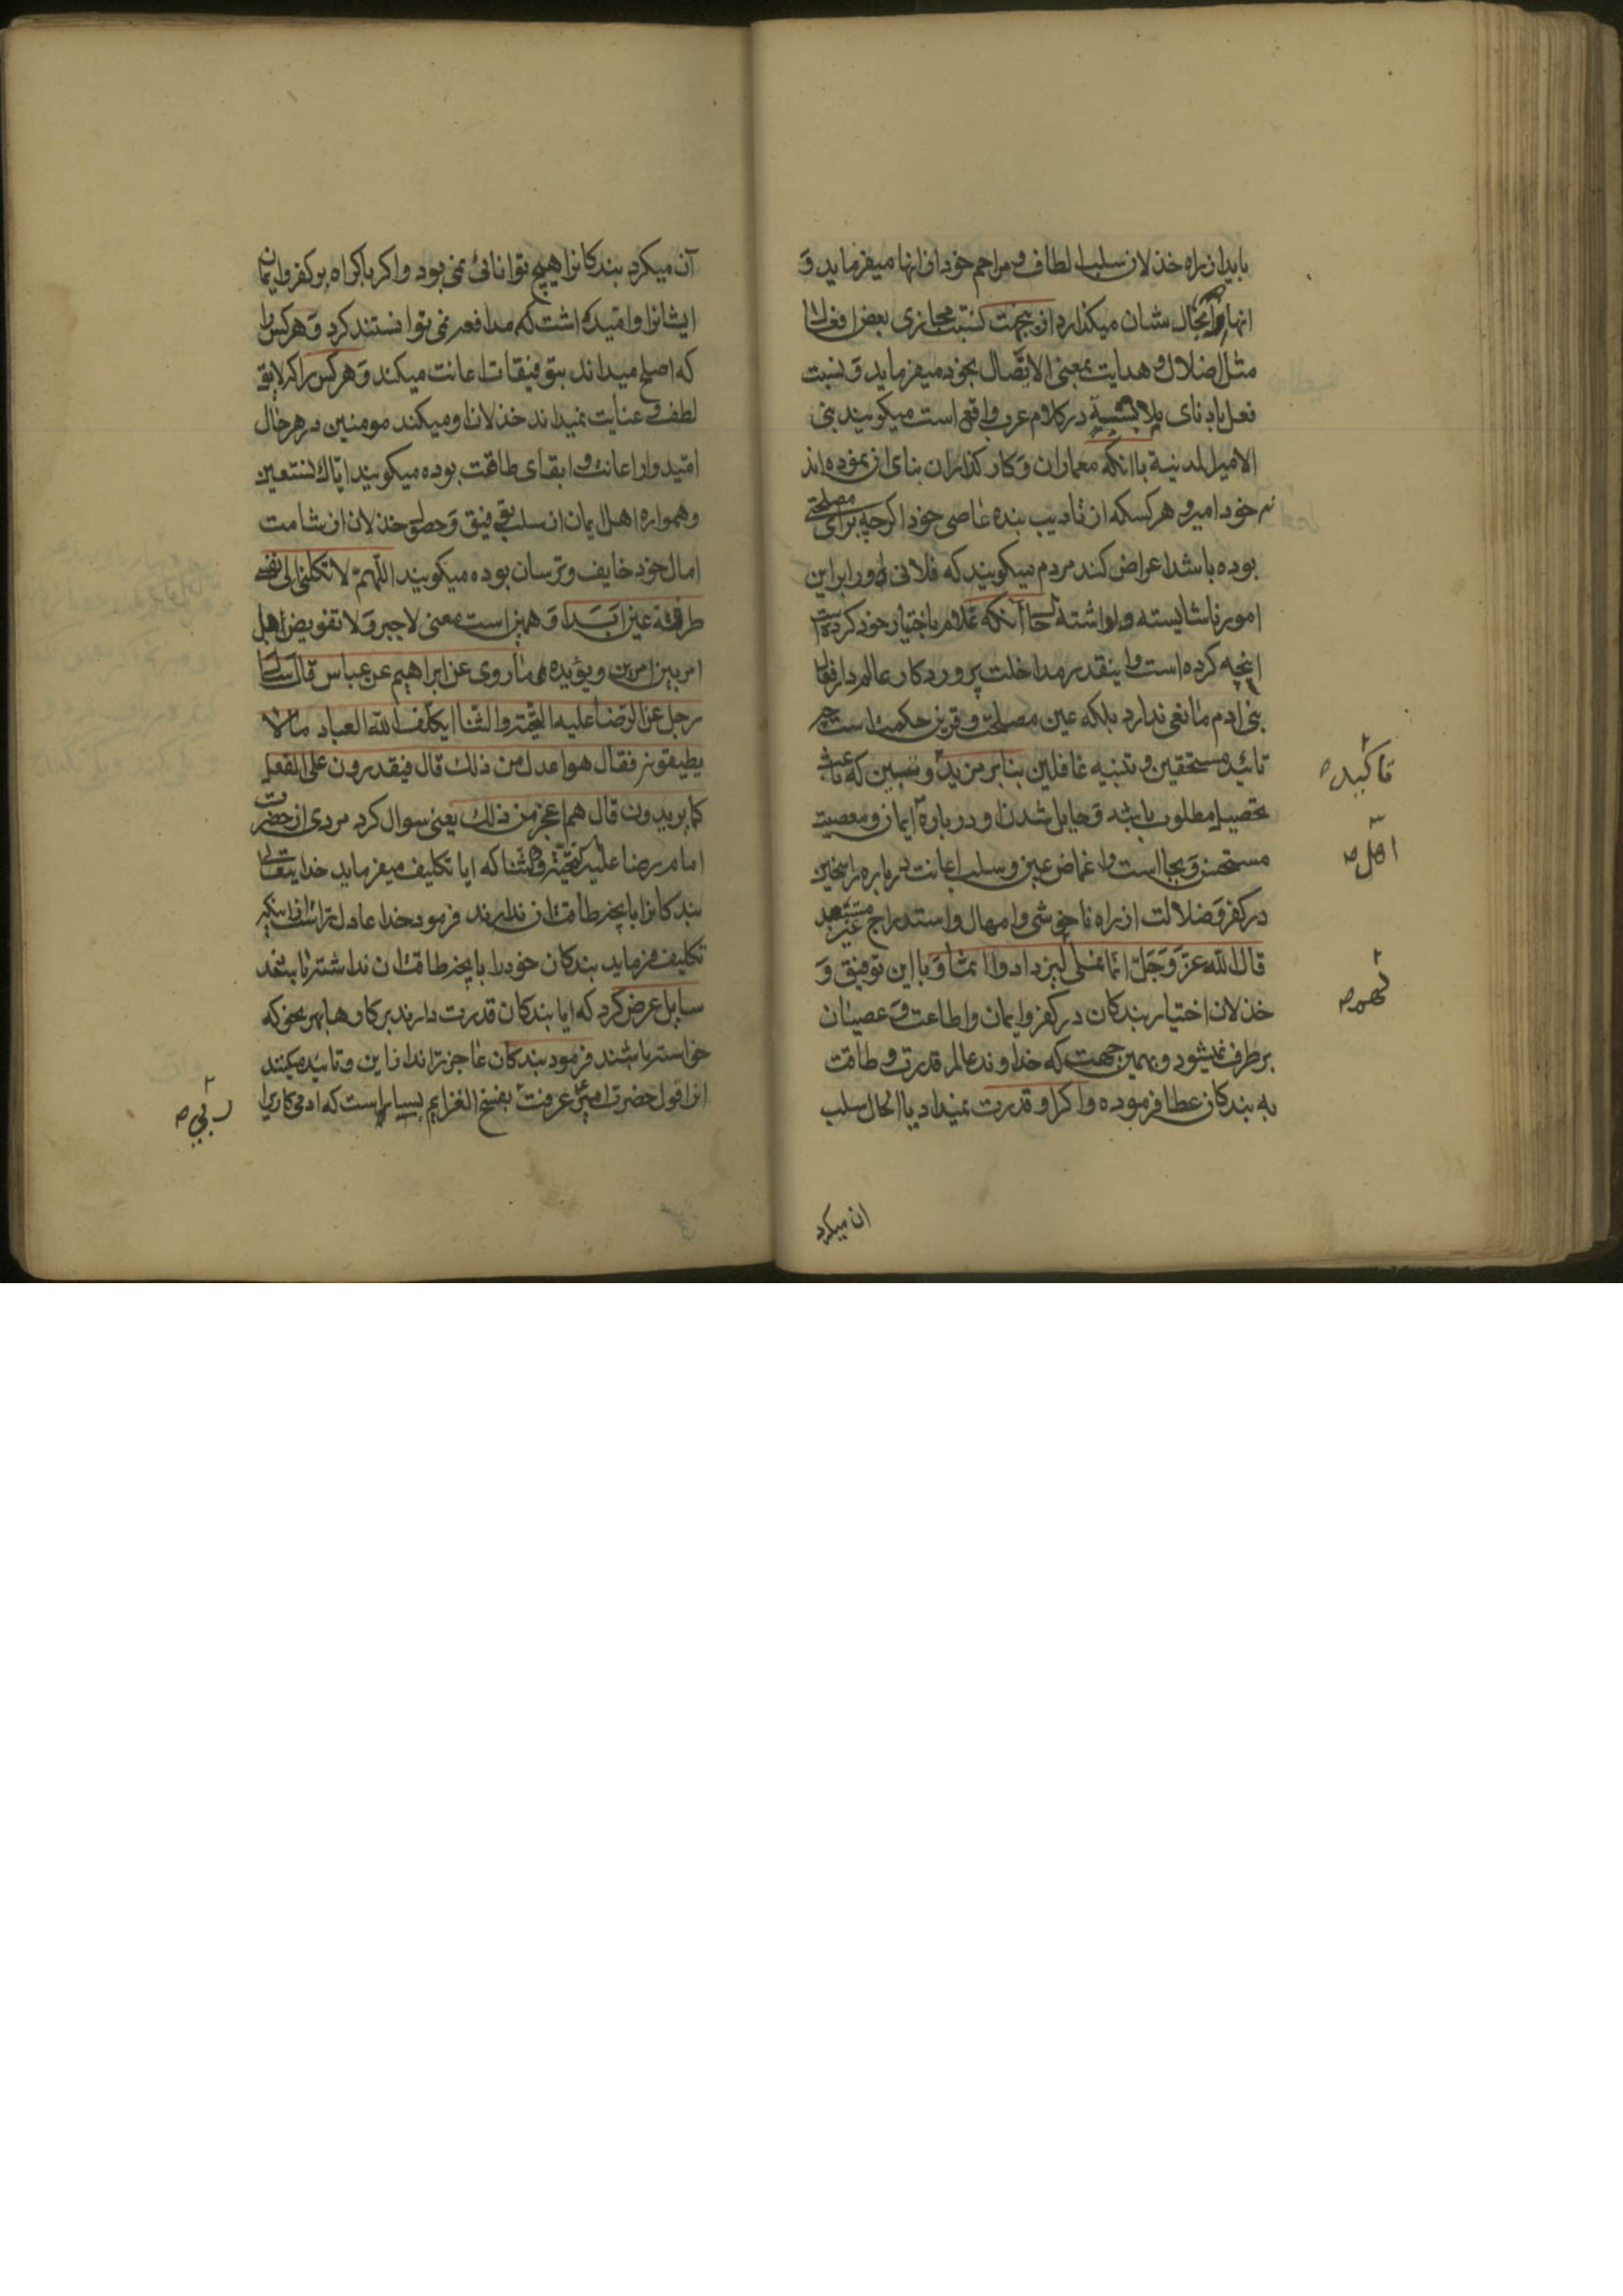 باید از راه خذلان سلب الطاف و مراحم خود از انها میفرماید و
انها را بحال شان میکذارد از ینجهت نسبت مجازی بعض افعال را
مثل اضلال و هدایت بمعنی الایصال بخود میفرماید و نسبت
فعل بادنای ملابسة در کلام عرب واقع است میکویند بنی
الامیر المدینة با انکه معماران و کارکذاران بنای ان نموده اند
نه خود امیر و هر کسکه از تادیب بنده عاصی خود اکرچه برای مصلحتی
بوده باشد اعراض کند مردم میکویند که فلانی او را بر این
امور ناشایسته واداشته حال آنکه غلام باختیار خود کرده است
انچه کرده است و اینقدر مداخلت پروردکار عالم در افعال
بنی ادم مانعی ندارد بلکه عین مصلحت و قرین حکمت است چه
تائید مستحقین و تنبیه غافلین بنابر مزید و تسبین که باعث
تحصیل مطلوب باشد و حایل شدن او در بارهٔ ایمان و معصیت
مستحسن و بجا است و اغماض عین و سلب اعانت در باره راسخین
در کفر و ضلالت از راه ناخوشی و امهال و استدراج غیر مستبعد
قال الله عز و جل انما نملی لیزدادوا اثما و با این توفیق و
خذلان اختیار بندکان در کفر و ایمان و اطاعت و عصینان
برطرف نمیشود و بهمین جهت که خداوند عالم قدرت و طاقت
به بندکان عطا فرموده و اکر او قدرت نمیداد یا الحال سلب
ان میکرد
تاکیده
اهل ص
نهد ص
آن میکرد بندکانرا هیچ توانائی نمی بود و اکر باکراه بر کفر و ایمان
ایشانرا وامیداشت که مدافعه نمی توانستند کرد و هر کس را
که اصلح میداند بتوفیقات اعانت میکند و هر کس را که لایق
لطف و عنایت نمیداند خذلان او میکند مومنین در هر حال
امیدوار اعانت و ابقای طاقت بوده میکویند ایاک نستعین
و همواره اهل ایمان از سلب توفیق و حصول خذلان از شامت
امال خود خایف و ترسان بوده میکویند اللهم لا تکلنی الی نفسی
طرفة عین ابدا و همین است معنی لا جبر و لا تفویض بل
امر بین امرین و یؤیده ما روی عن ابراهیم عن عباس قال سال
رجل عن الرضا علیه التحیة و الثنا ایکلف الله العباد ما لا
یطیقونه فقال هو اعدل من ذلک قال فیقدرون علی الفعل
کما یریدون قال هم اعجز من ذلک یعنی سوال کرد مردی از حضرت
امام رضا علیه التحیة و الثنا که ایا تکلیف میفرماید خدایتعالی
بندکانرا بانچه طاقت ان ندارند فرمود خدا عادل تر است از اینکه
تکلیف فرماید بندکان خود را بانچه طاقت ان نداشته باشند
سایل عرض کرد که ایا بندکان قدرت دارند بر کارها بهر نحو که
خواسته باشند فرمود بندکان عاجز تراند از این و تائید میکند
انرا قول حضرت امیر عرفت بفسخ العزایم بسیار است که ادمی کاریرا
ربی ص